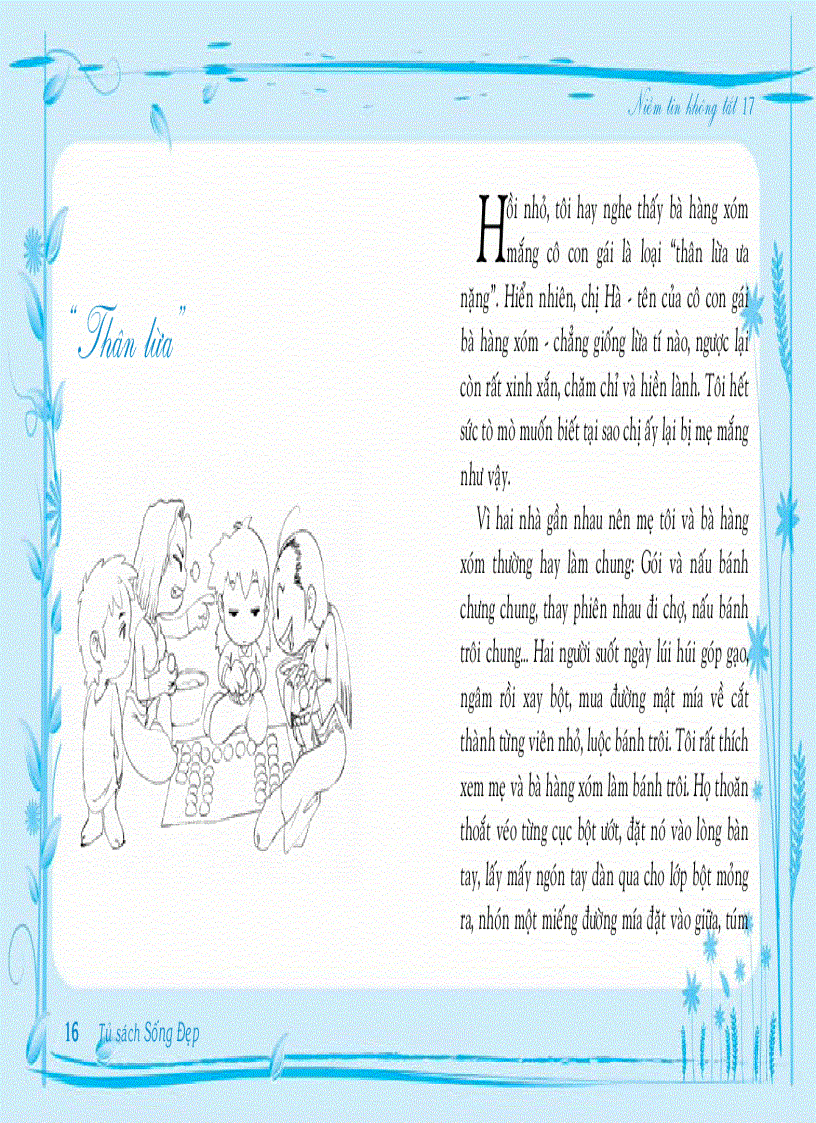 Niềm tin không tắt 17
“Thân lừa”
Hồi nhỏ, tôi hay nghe thấy bà hàng xóm
mắng cô con gái là loại “thân lừa ưa
nặng”. Hiển nhiên, chị Hà - tên của cô con gái
bà hàng xóm - chẳng giống lừa tí nào, ngược lại
còn rất xinh xắn, chăm chỉ và hiền lành. Tôi hết
sức tò mò muốn biết tại sao chị ấy lại bị mẹ mắng
như vậy.
Vì hai nhà gần nhau nên mẹ tôi và bà hàng
xóm thường hay làm chung: Gói và nấu bánh
chưng chung, thay phiên nhau đi chợ, nấu bánh
trôi chung... Hai người suốt ngày lúi húi góp gạo,
ngâm rồi xay bột, mua đường mật mía về cắt
thành từng viên nhỏ, luộc bánh trôi. Tôi rất thích
xem mẹ và bà hàng xóm làm bánh trôi. Họ thoăn
thoắt véo từng cục bột ướt, đặt nó vào lòng bàn
tay, lấy mấy ngón tay dàn qua cho lớp bột mỏng
ra, nhón một miếng đường mía đặt vào giữa, túm
16 Tủ sách Sống Đẹp